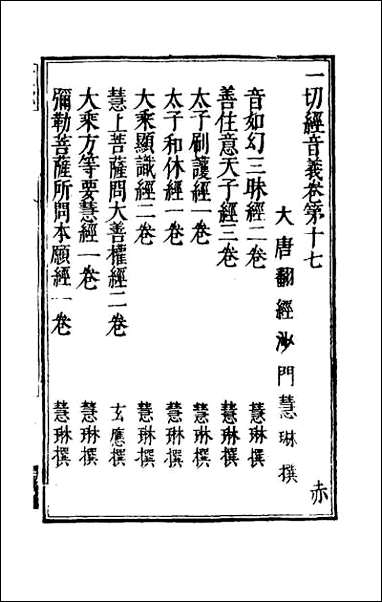 一切經音義卷第十七
赤
大唐翻經沙門慧琳撰
音如幻三昧經二卷 慧琳撰
善住意天子經三卷 慧琳撰
太子刷護經一卷 慧琳撰
太子和休經一卷 慧琳撰
大乘顯識經二卷 慧琳撰
慧上菩薩問大善權經二卷 玄應撰
大乘方等要慧經一卷 慧琳撰
彌勒菩薩所問本願經一卷 慧琳撰